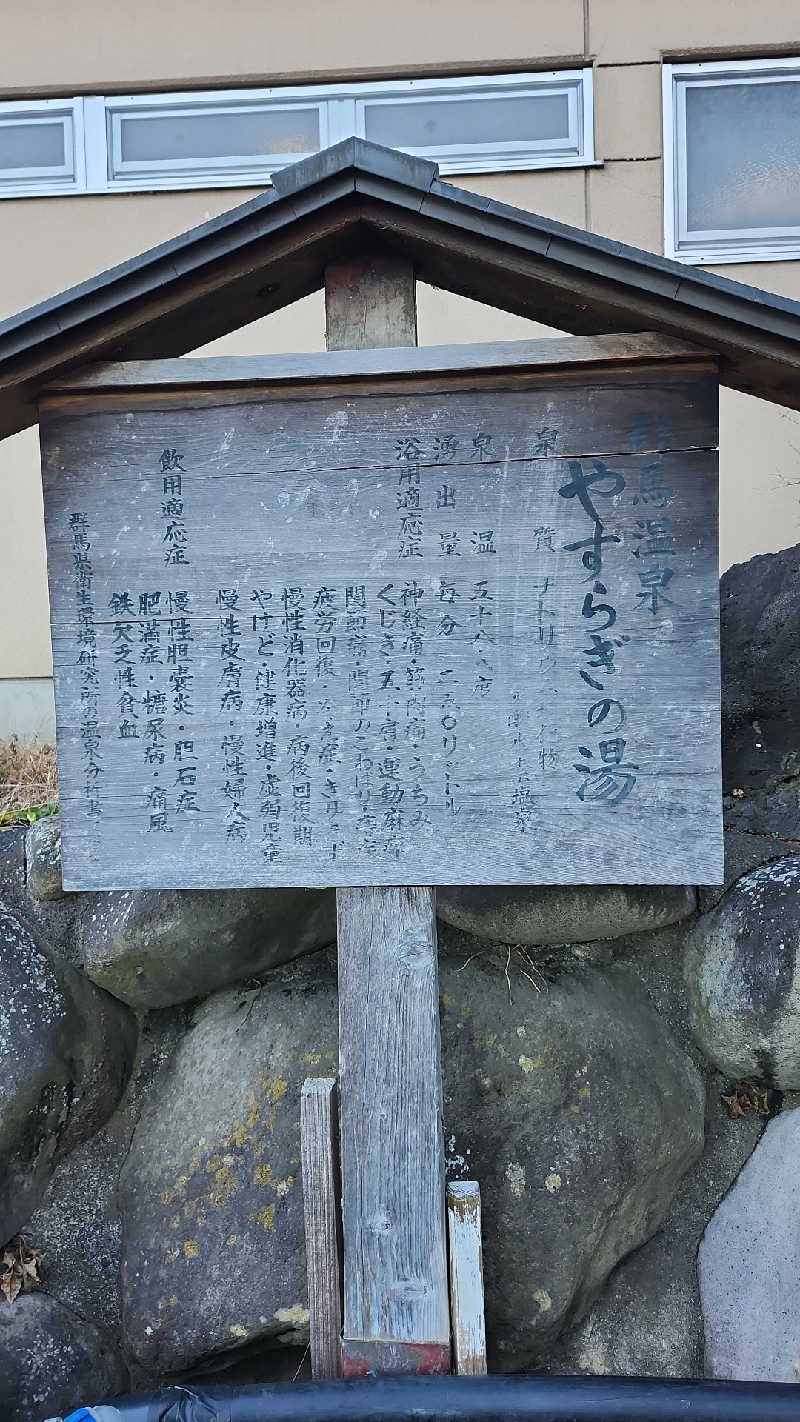 群馬温泉
やすらぎの湯
泉質 ナトリウム 化物
塩泉
泉温 五十 度
湧出量 毎分 二 〇リットル
浴用適応症 神経痛・筋肉痛・うちみ
くじき・五十肩・運動麻痺
関節痛・関節のこわばり
疲労回復・ 症・きりきず
慢性消化器病・病後回復期
やけど・健康増進・虚弱児童
慢性皮膚病・慢性婦人病
飲用適応症 慢性胆嚢炎・胆石症
肥満症・糖尿病・痛風
鉄欠乏性貧血
群馬県衛生環境研究所の温泉分析書